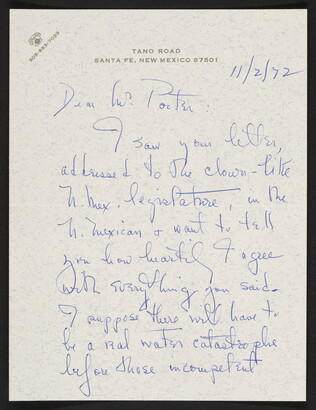 TANO ROAD
SANTA FE, NEW MEXICO 87501
11/2/72
Dear Mr. Porter:
I saw your letter,
addressed to the clown-like
N. Mex. legislature, in the
N. Mexican & want to tell
you how heartily I agree
with everything you said.
I suppose there will have to
be a real water catastrophe
before those incompetent